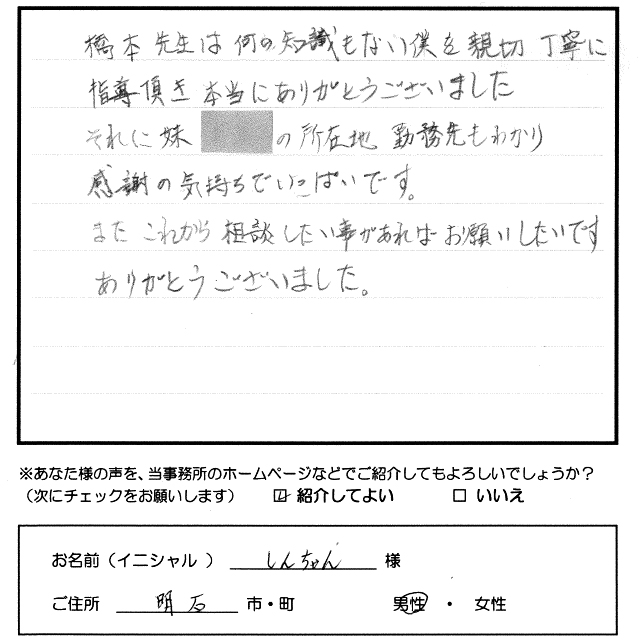 橋本先生は何の知識もない僕を親切丁寧に
指導頂き本当にありがとうございました
それに妹 の所在地 勤務先もわかり
感謝の気持ちでいっぱいです。
またこれから相談したい事があればお願いしたいです
ありがとうございました。
※あなた様の声を、当事務所のホームページなどでご紹介してもよろしいでしょうか?
(次にチェックをお願いします) ☑ 紹介してよい □ いいえ
お名前(イニシャル ) しんちゃん 様
ご住所 明石 市・町 男性 ・ 女性